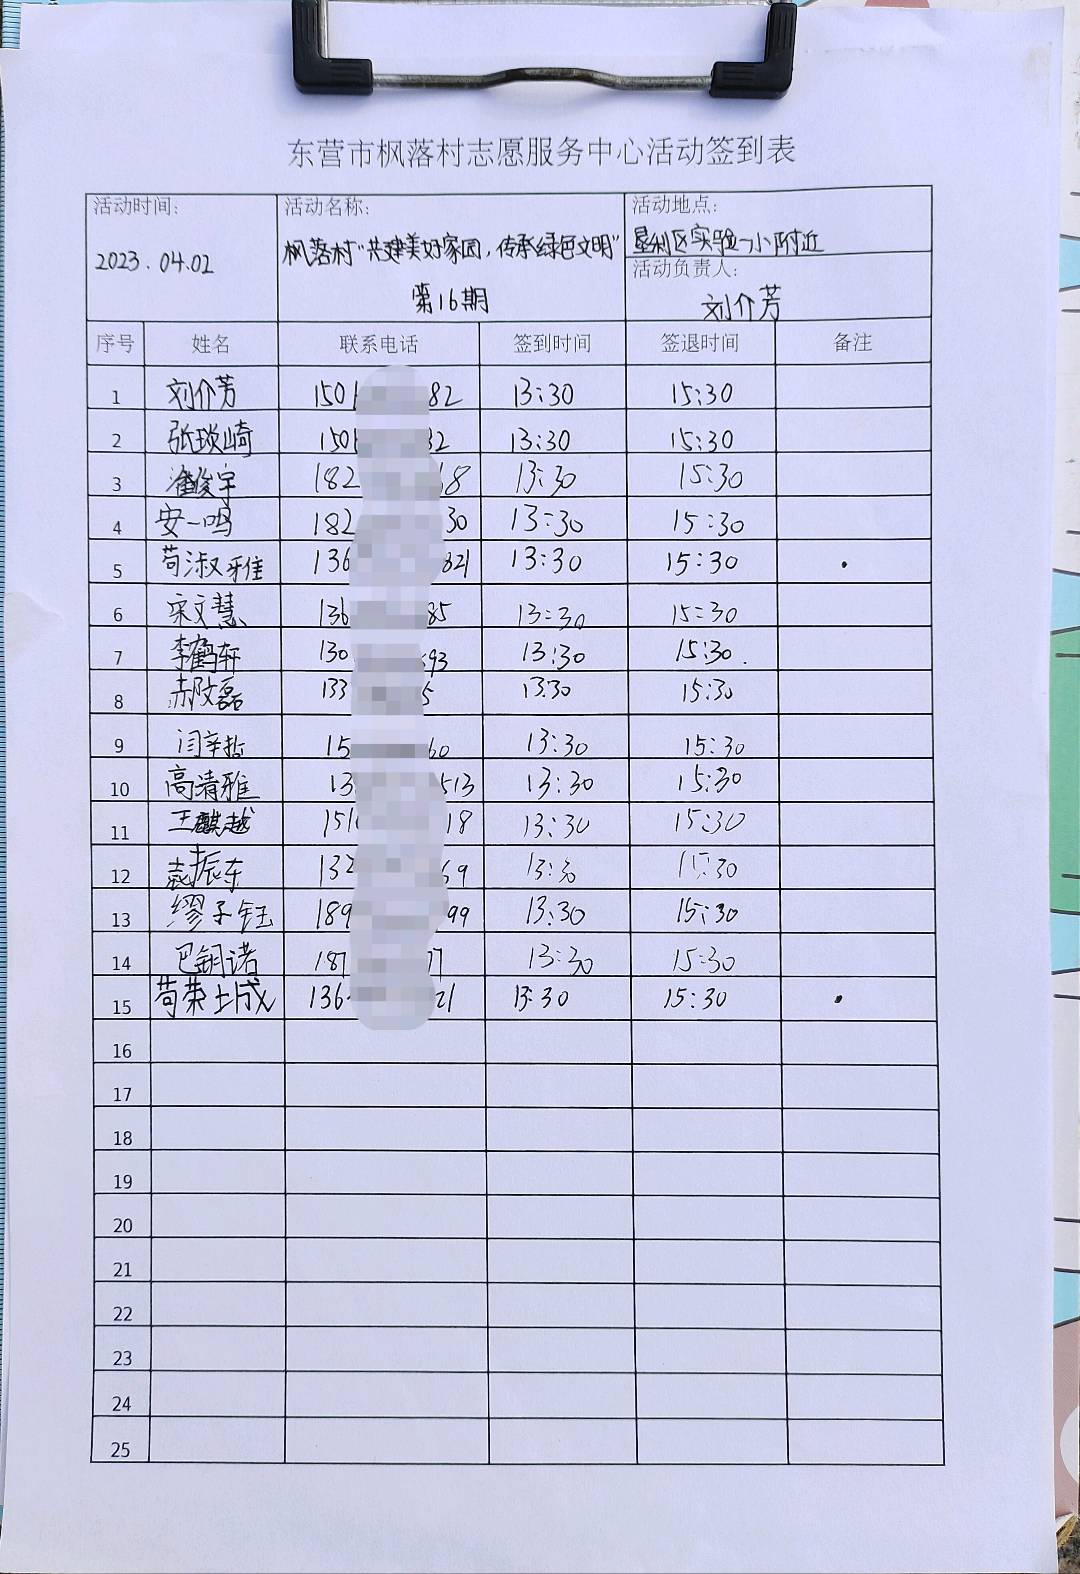 东营市枫落村志愿服务中心活动签到表
活动时间： 活动名称： 活动地点：
2023.04.02 枫落村“共建美好家园，传承绿色文明” 垦利区实验一小附近
第16期 活动负责人：
刘介芳
序号 姓名 联系电话 签到时间 签退时间 备注
1 刘介芳 150 82 13:30 15:30
2 张琰崎 150 32 13:30 15:30
3 潘俊宇 182 68 13:30 15:30
4 安一鸣 182 30 13:30 15:30
5 苟淑雅 136 821 13:30 15:30
6 宋文慧 136 85 13:30 15:30
7 李鹤轩 130 93 13:30 15:30
8 郝文磊 133 5 13:30 15:30
9 闫辛哲 15 60 13:30 15:30
10 高清雅 13 513 13:30 15:30
11 王麒越 151 18 13:30 15:30
12 袁振东 132 69 13:30 15:30
13 缪子钰 189 99 13:30 15:30
14 巴钥诺 187 77 13:30 15:30
15 苟荣 136 21 13:30 15:30
16
17
18
19
20
21
22
23
24
25